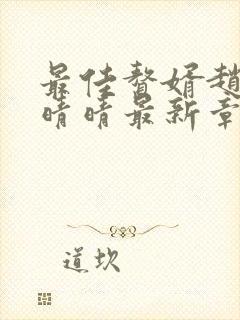 最佳赘婿赵
晴晴最新章
道坎